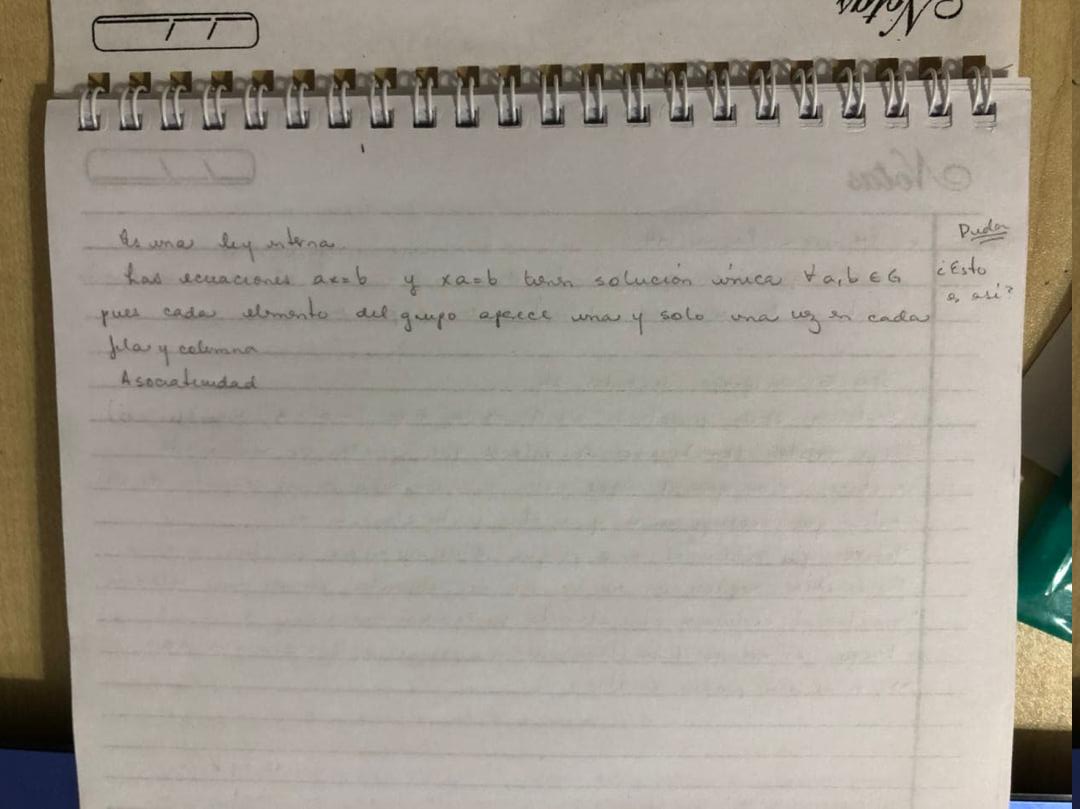 Notas
Es una ley interna
Las ecuaciones ax=b y xa=b tienen solución única ∀a,b ∈ G
pues cada elemento del grupo aparece una y solo una vez en cada
fila y columna
Asociatividad
Dudas
¿Esto
es así?